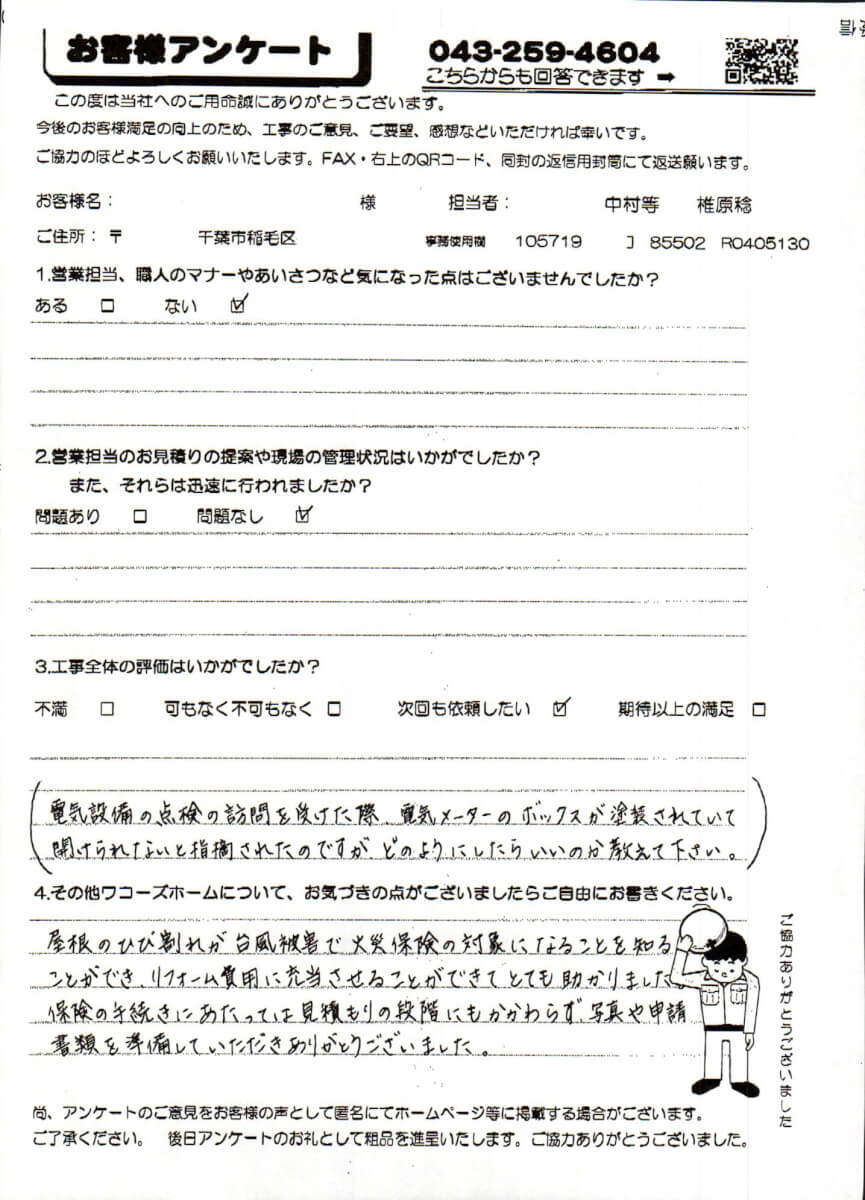 お客様アンケート
043-259-4604
こちらからも回答できます ➡
この度は当社へのご用命誠にありがとうございます。
今後のお客様満足の向上のため、工事のご意見、ご要望、感想などいただければ幸いです。
ご協力のほどよろしくお願いいたします。FAX・右上のQRコード、同封の返信用封筒にて返送願います。
お客様名： 様 担当者： 中村等 椎原稔
ご住所：〒 千葉市稲毛区 事務使用欄 105719 J 85502 R0405130
1.営業担当、職人のマナーやあいさつなど気になった点はございませんでしたか？
ある □ ない ☑
2.営業担当のお見積りの提案や現場の管理状況はいかがでしたか？
また、それらは迅速に行われましたか？
問題あり □ 問題なし ☑
3.工事全体の評価はいかがでしたか？
不満 □ 可もなく不可もなく □ 次回も依頼したい ☑ 期待以上の満足 □
電気設備の点検の訪問を受けた際、電気メーターのボックスが塗装されていて
開けられないと指摘されたのですが、どのようにしたらいいのか教えて下さい。
4.その他ワコーズホームについて、お気づきの点がございましたらご自由にお書きください。
屋根のひび割れが台風被害で火災保険の対象になることを知る
ことができ、リフォーム費用に充当させることができてとても助かりました。
保険の手続きにあたっては見積もりの段階にもかかわらず、写真や申請
書類を準備していただきありがとうございました。
ご協力ありがとうございました
尚、アンケートのご意見をお客様の声として匿名にてホームページ等に掲載する場合がございます。
ご了承ください。 後日アンケートのお礼として粗品を進呈いたします。ご協力ありがとうございました。